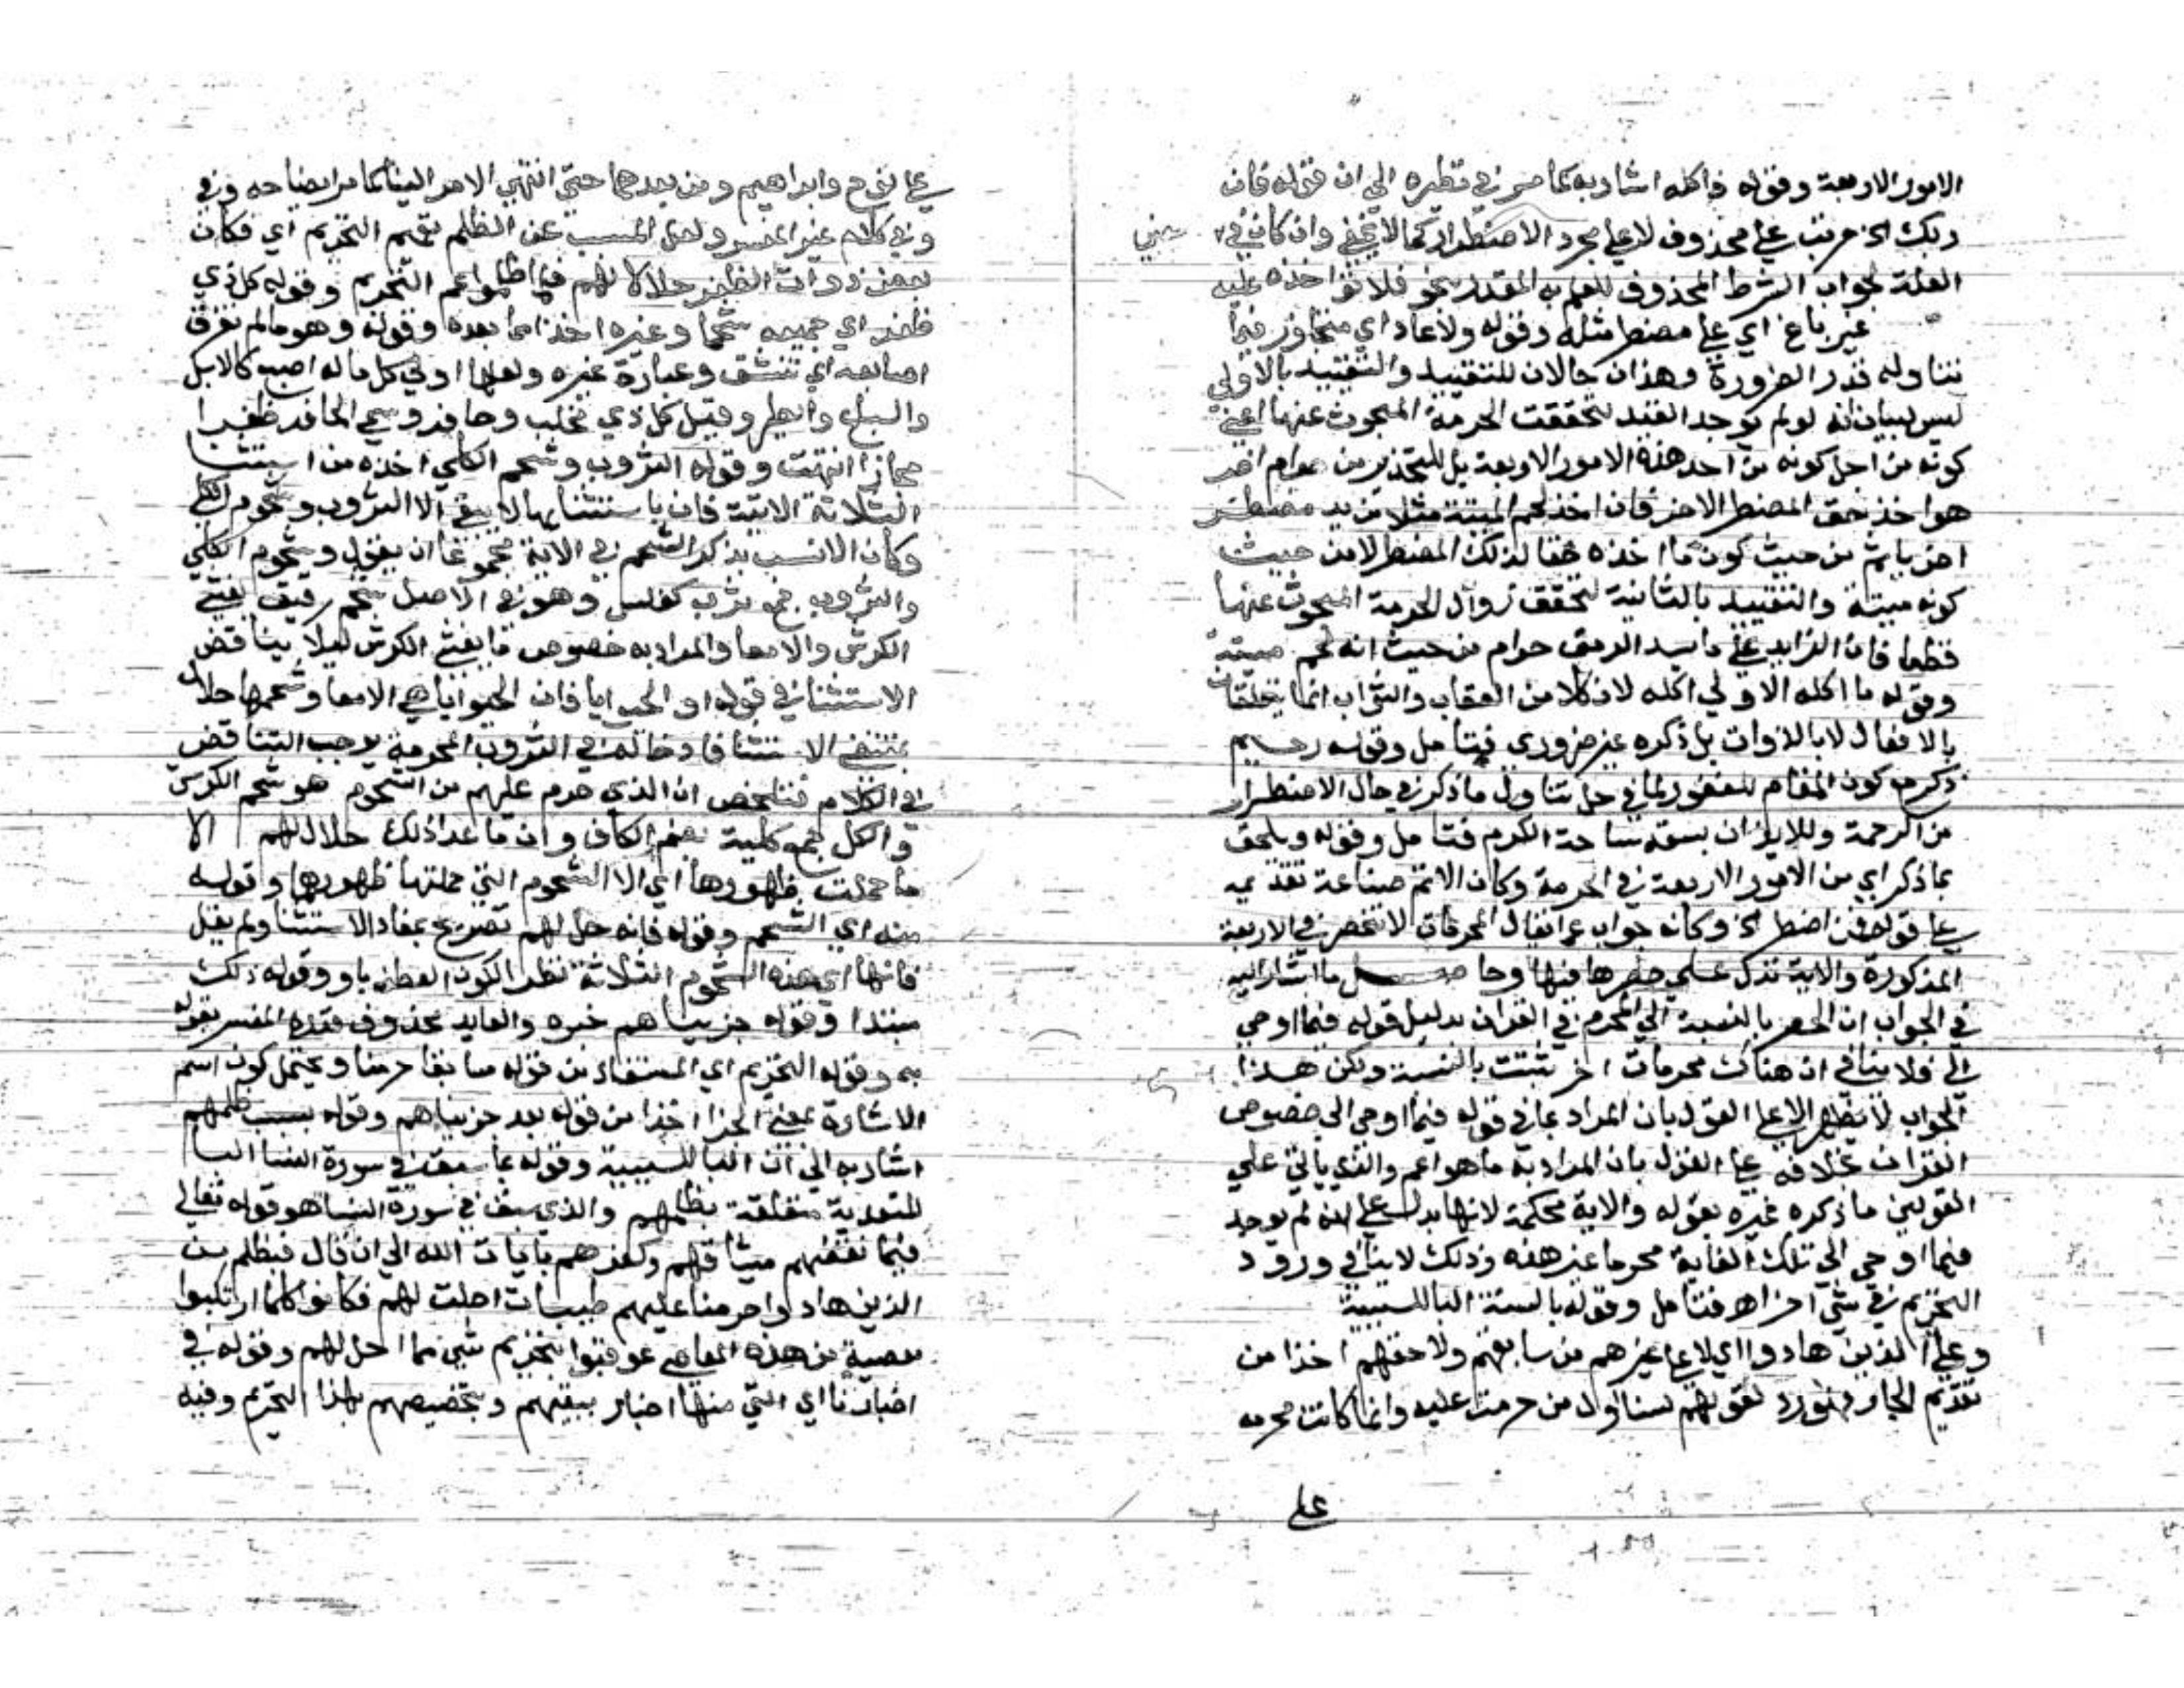 الامور الاربعة وقوله فاكله اشار به كما مر في نظيره الى ان قوله فان
ربك الخ مرتب على محذوف لا على مجرد الاضطرار كما لا يخفى وان كان في
العلة لجواب الشرط المحذوف للعلم به المقدر بنحو فلا تواخذه عليه
غير باغ اي على مضطر مثله وقوله ولا عاد اي متجاوز فيما
تناوله قدر الضرورة وهذان حالان للتقييد والتقييد بالاولى
ليس لبيان انه لو لم يوجد القيد لتحققت الحرمة المبحوث عنها اعني
كونه من اجل كونه من احد هذه الامور الاربعة بل للتحذير من حرام اخر
هو اخذ حق المضطر الاخر فان اخذ لحم الميتة مثلا من يد مضطر
اخر ياثم من حيث كون ما اخذه حقا لذلك المضطر لا من حيث
كونه ميتة والتقييد بالثانية لتحقق زوال الحرمة المبحوث عنها
قطعا فان الزايد على ما يسد الرمق حرام من حيث انه لحم ميتة
وقوله ما اكله الاولى اكله لان كلا من العقاب والثواب انما يتعلقان
بالافعال لا بالذوات بل ذكره غير ضروري فتامل وقوله رحيم
ذكره مع كون المقام للغفور لما في حل تناول ما ذكر في حال الاضطرار
من الرحمة وللايذان بسعة ساحة الكرم فتامل وقوله ويلحق
بما ذكر اي من الامور الاربعة في الحرمة وكان الاتم صناعة تقديمه
على قوله فمن اضطر الخ وكانه جواب عما يقال المحرمات لا تنحصر في الاربعة
المذكورة والاية تدل على حصرها فيها وحاصل ما اشار اليه
في الجواب ان الحصر بالنسبة الى المحرم في القران بدليل قوله فيما اوحي
الي فلا ينافي ان هناك محرمات اخر تثبت بالسنة ولكن هذا
الجواب لا يظهر الا على القول بان المراد بما في قوله فيما اوحي الي خصوص
القران بخلافه على القول بان المراد به ما هو اعم والذي ياتي على
القولين ما ذكره غيره بقوله والاية محكمة لانها تدل على انه لم يوجد
فيما اوحي الى تلك الغاية محرما غير هذه وذلك لا ينافي ورود
التحريم في شي اخر اهـ فتامل وقوله بالسنة البا للسببية
وعلى الذين هادوا اي لا على غيرهم من سابقهم ولاحقهم اخذا من
تقديم الجار فهو رد لقولهم لسنا اول من حرمت عليه وانما كانت محرمه
على
على نوح وابراهيم ومن بعدهما حتى انتهى الامر الينا كما مر ايضاحه وفي
وفي كلام غير المفسر ولعل المسبب عن الظلم تعميم التحريم اي فكان
بعض ذوات الظفر حلالا لهم فلما ظلموا عم التحريم وقوله كل ذي
ظفر اي جميعه شحما وغيره اخذا مما بعده وقوله وهو ما لم تفرق
اصابعه اي تنشق وعبارة غيره ولعلها اولى كل ما له اصبع كالابل
والسباع والطير وقيل كل ذي مخلب وحافر وسمي الحافر ظفرا
مجازا انتهت وقوله الثروب وشحم الكلى اخذه من استثنا
الثلاثة الاتية فان باستثنايها لا يبقى الا الثروب وشحوم الكلى
وكان الانسب بذكر الشحم في الاية مجموعا ان يقول وشحوم الكلى
والثروب جمع ثرب كفلس وهو في الاصل شحم رقيق يغشى
الكرش والامعا والمراد به خصوص ما يغشى الكرش ليلا يناقض
الاستثنا في قوله او الحوايا فان الحوايا هي الامعا وشحمها حلال
بمقتضى الاستثنا فادخاله في الثروب المحرمة يوجب التناقض
في الكلام فتلخص ان الذي حرم عليهم من الشحوم هو شحم الكرش
والكلى جمع كلية بضم الكاف وان ما عدا ذلك حلال لهم الا
ما حملت ظهورهما اي الا الشحوم التي حملتها ظهورهما وقوله
منه اي الشحم وقوله فانه حل لهم تصريح بمفاد الاستثنا ولم يقل
فانها اي هذه الشحوم الثلاثة نظرا لكون العطف باو وقوله ذلك
مبتدا وقوله جزيناهم خبره والعايد محذوف قدره المفسر بقوله
به وقوله التحريم اي المستفاد من قوله سابقا حرمنا ويحتمل كون اسم
الاشارة بمعنى الجزا اخذا من قوله بعد جزيناهم وقوله بسبب ظلمهم
اشار به الى ان البا للسببية وقوله بما سبق في سورة النسا البا
للتعدية متعلقة بظلمهم والذي سبق في سورة النسا هو قوله تعالى
فبما نقضهم ميثاقهم وكفرهم بايات الله الى ان قال فبظلم من
الذين هادوا حرمنا عليهم طيبات احلت لهم فكانوا كلما ارتكبوا
معصية من هذه المعاصي عوقبوا بتحريم شي مما احل لهم وقوله في
اخبارنا اي التي منها اخبار ببغيهم وتخصيصهم بهذا التحريم وفيه